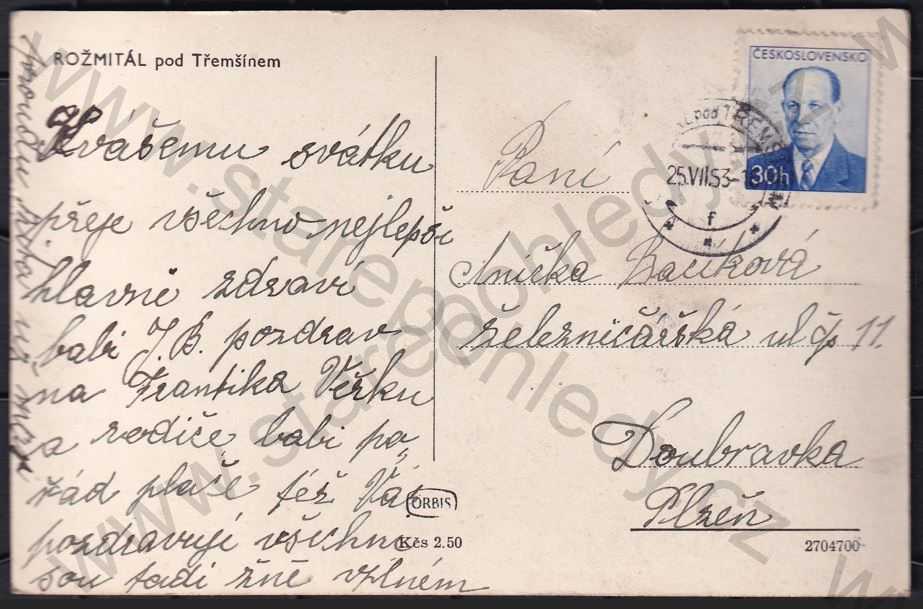 ROŽMITÁL pod Třemšínem
K vášemu svátku
přeje všechno nejlepší
hlavně zdraví
babi J. B. pozdrav
na Frantika Věrku
a rodiče babi po
řád plače též Vás
pozdravují všichni
sou tadi žně v plném
ORBIS
Kčs 2.50
ČESKOSLOVENSKO
30h
pod TŘEMŠ
25.VII.53-1
f
Paní
Anička Bačíková
Železničářská ul čp 11.
Doubravka
Plzeň
2704700
www.starepohledy.cz